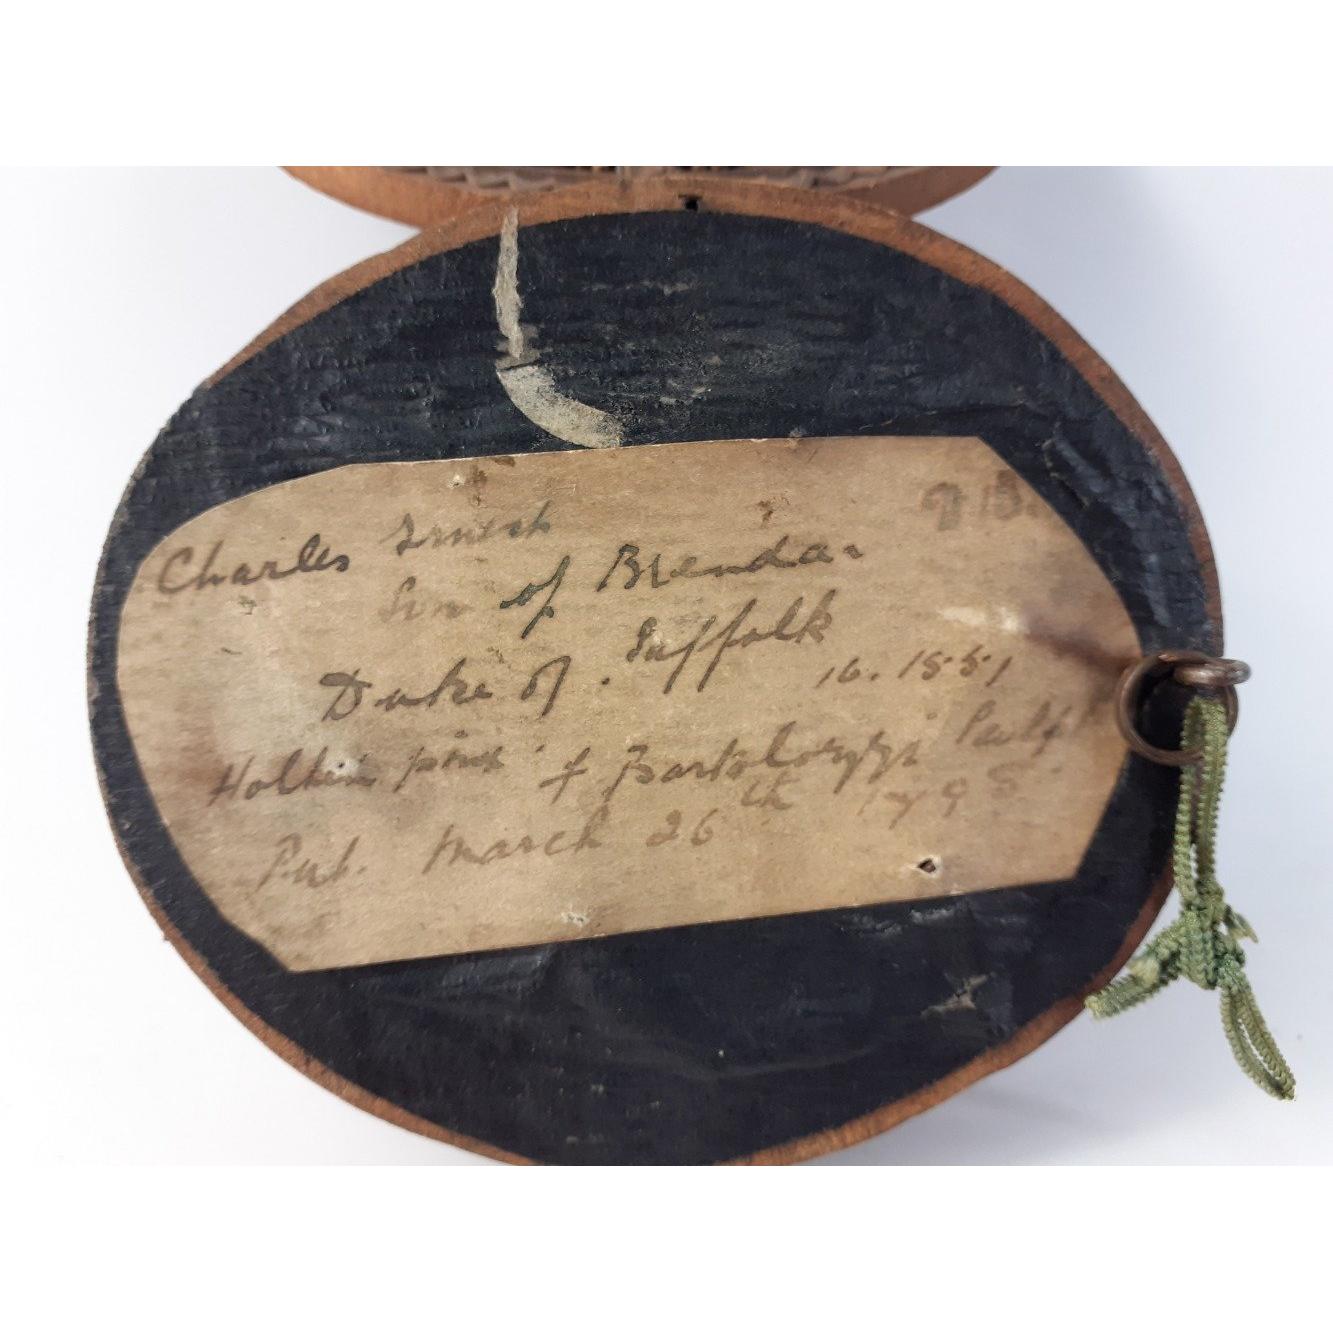 Charles Ernest
Son of Brenda.
Duke of. Suffolk
16. 1551
Holbein pinx & Bartolozzi Sculpt
Pub. March 26th 1795